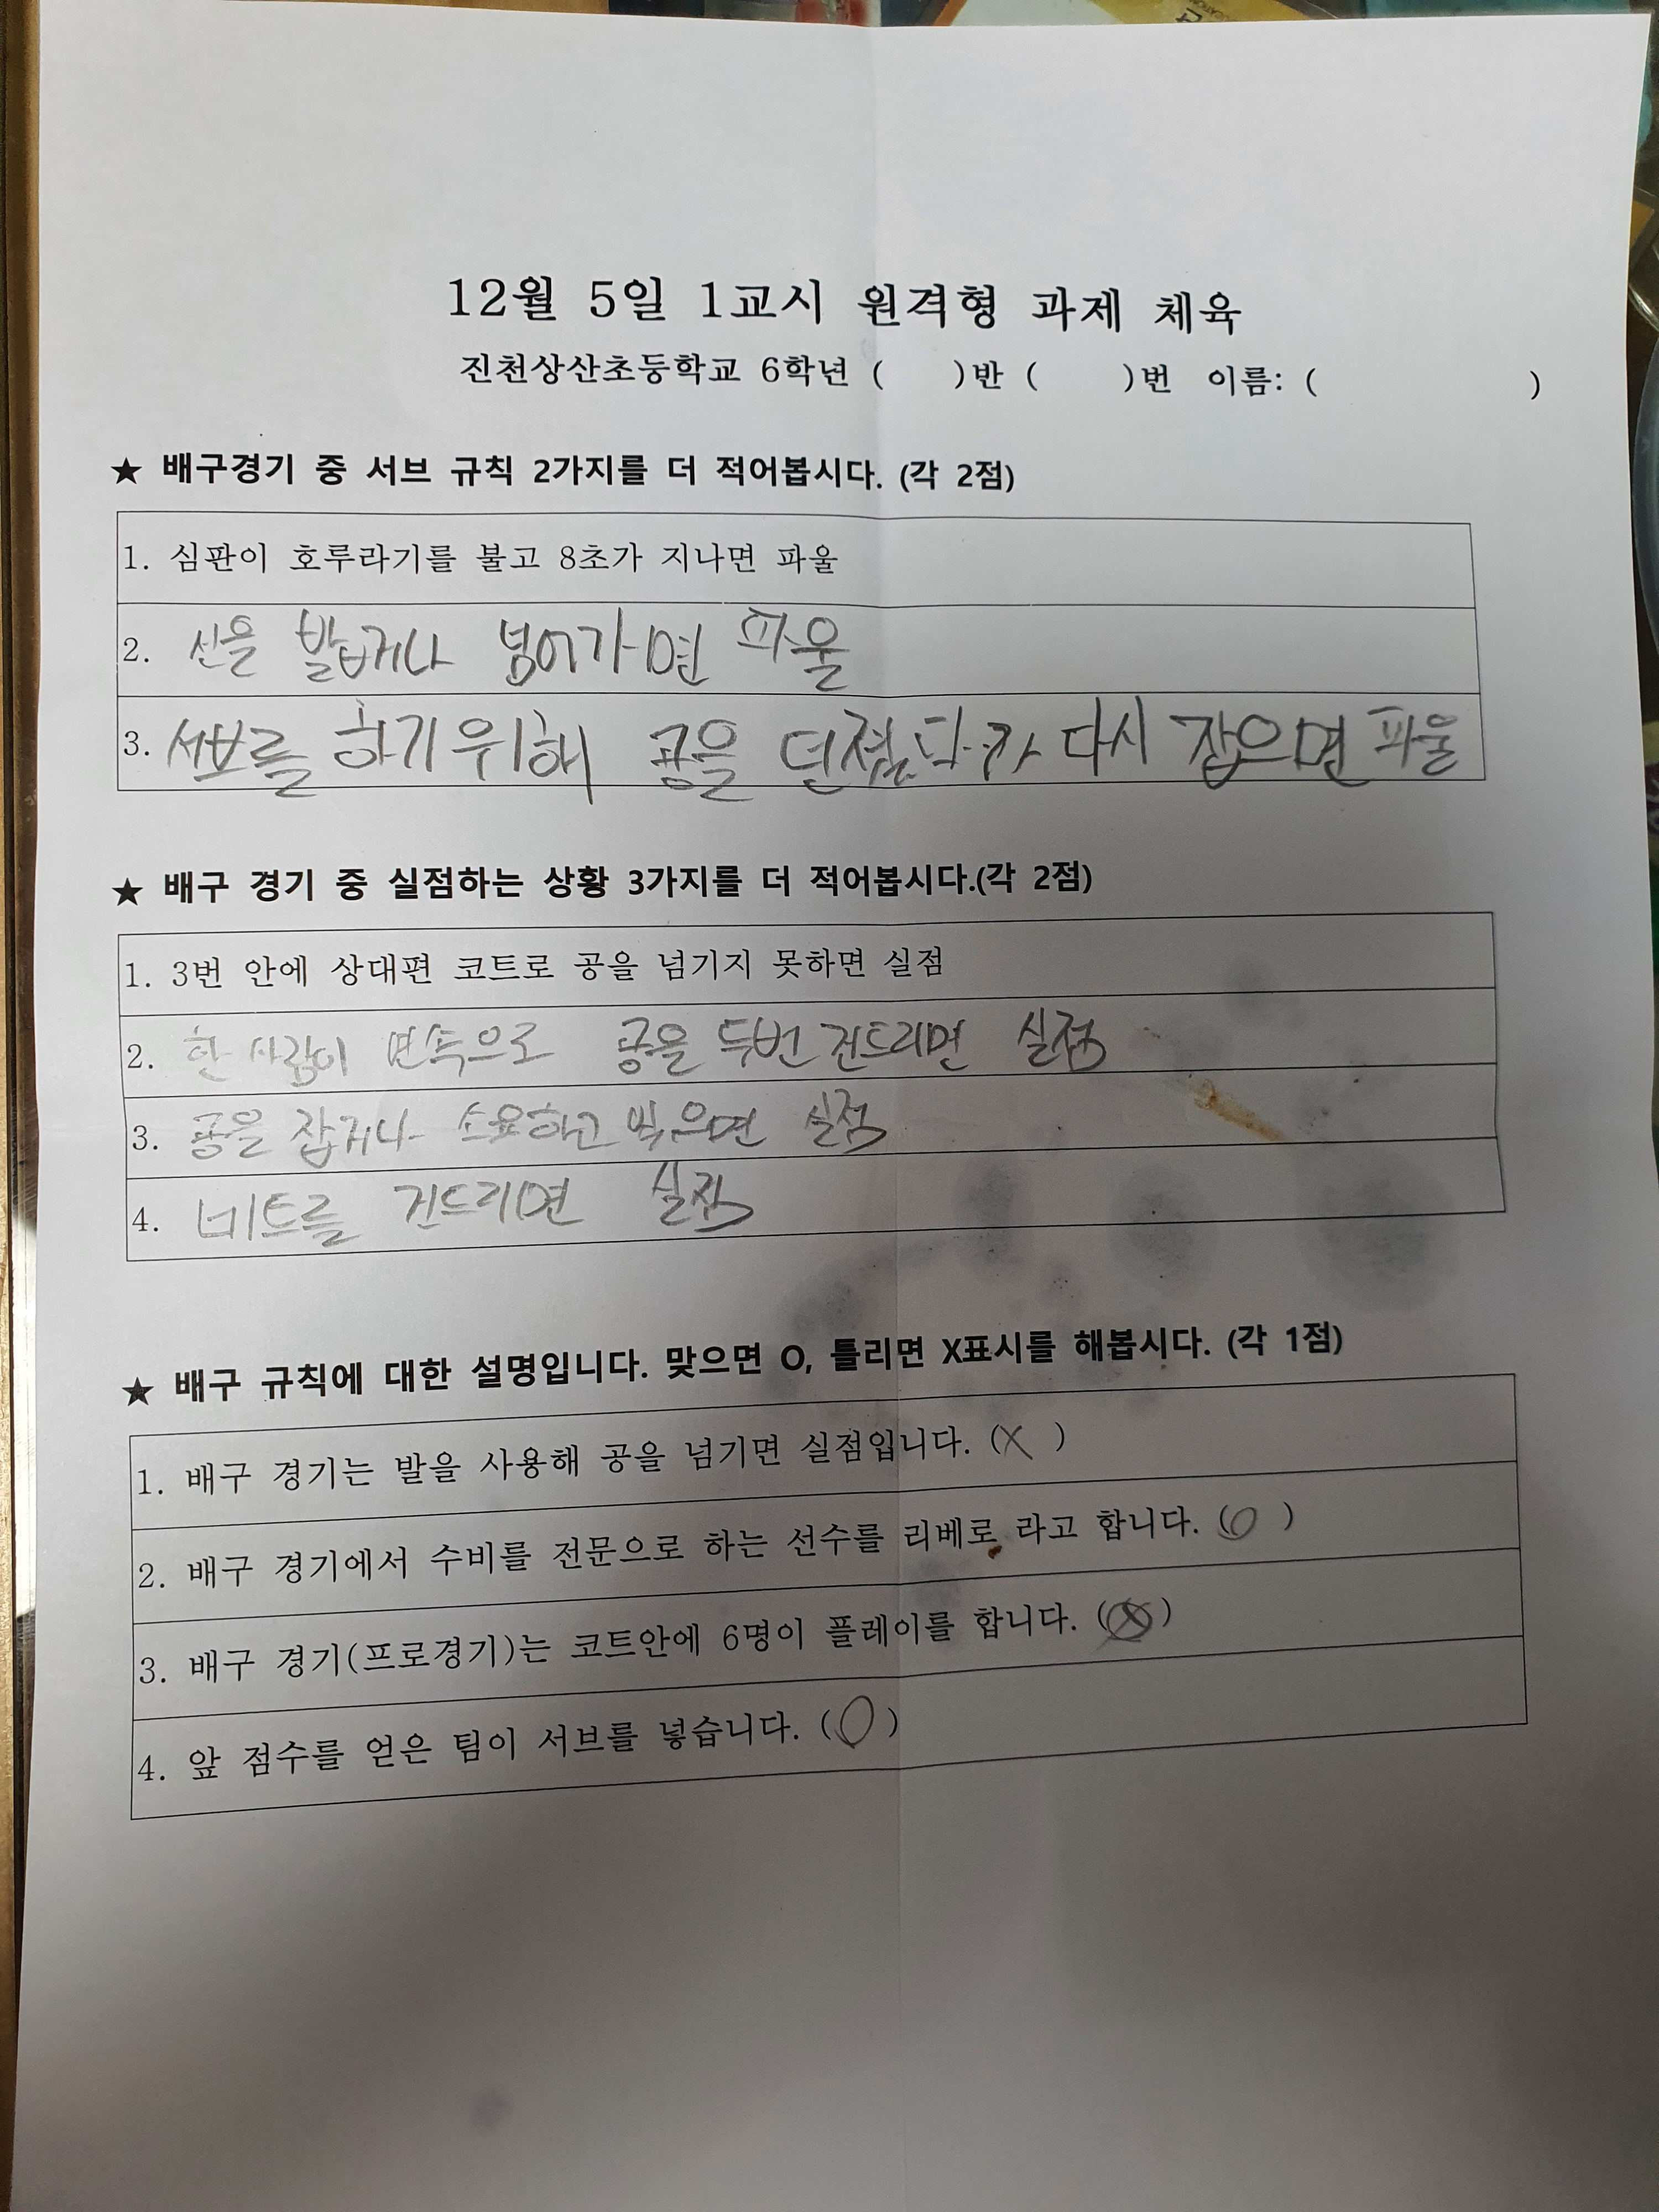 12월 5일 1교시 원격형 과제 체육
진천상산초등학교 6학년 (    )반 (    )번 이름: (        )
★ 배구경기 중 서브 규칙 2가지를 더 적어봅시다. (각 2점)
1. 심판이 호루라기를 불고 8초가 지나면 파울
2. 선을 밟거나 넘어가면 파울
3. 서브를 하기 위해 공을 던졌다가 다시 잡으면 파울
★ 배구 경기 중 실점하는 상황 3가지를 더 적어봅시다.(각 2점)
1. 3번 안에 상대편 코트로 공을 넘기지 못하면 실점
2. 한 사람이 연속으로 공을 두번 건드리면 실점
3. 공을 잡거나 면 실점
4. 네트를 건드리면 실점
★ 배구 규칙에 대한 설명입니다. 맞으면 O, 틀리면 X표시를 해봅시다. (각 1점)
1. 배구 경기는 발을 사용해 공을 넘기면 실점입니다. (X)
2. 배구 경기에서 수비를 전문으로 하는 선수를 리베로 라고 합니다. (O)
3. 배구 경기(프로경기)는 코트안에 6명이 플레이를 합니다. ( )
4. 앞 점수를 얻은 팀이 서브를 넣습니다. (O)